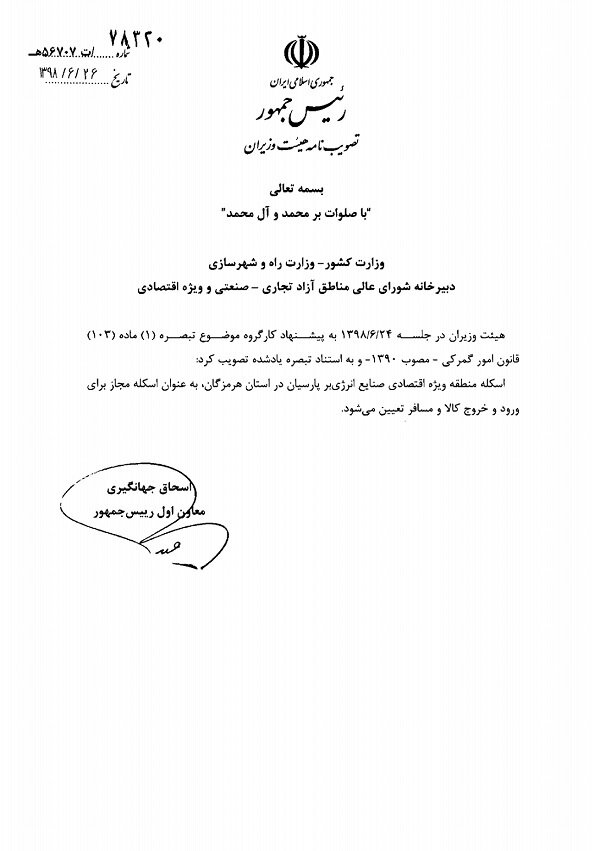 ۷۸۳۲۰
شماره ......../ت ۵۶۷۰۷هـ
تاریخ ۱۳۹۸/۶/۲۶
جمهوری اسلامی ایران
رئیس جمهور
تصویب نامه هیئت وزیران
بسمه تعالی
"با صلوات بر محمد و آل محمد"
وزارت کشور – وزارت راه و شهرسازی
دبیرخانه شورای عالی مناطق آزاد تجاری – صنعتی و ویژه اقتصادی
هیئت وزیران در جلسه ۱۳۹۸/۶/۲۴ به پیشنهاد کارگروه موضوع تبصره (۱) ماده (۱۰۳)
قانون امور گمرکی – مصوب ۱۳۹۰- و به استناد تبصره یادشده تصویب کرد:
اسکله منطقه ویژه اقتصادی صنایع انرژی‌بر پارسیان در استان هرمزگان، به عنوان اسکله مجاز برای
ورود و خروج کالا و مسافر تعیین می‌شود.
اسحاق جهانگیری
معاون اول رییس‌جمهور